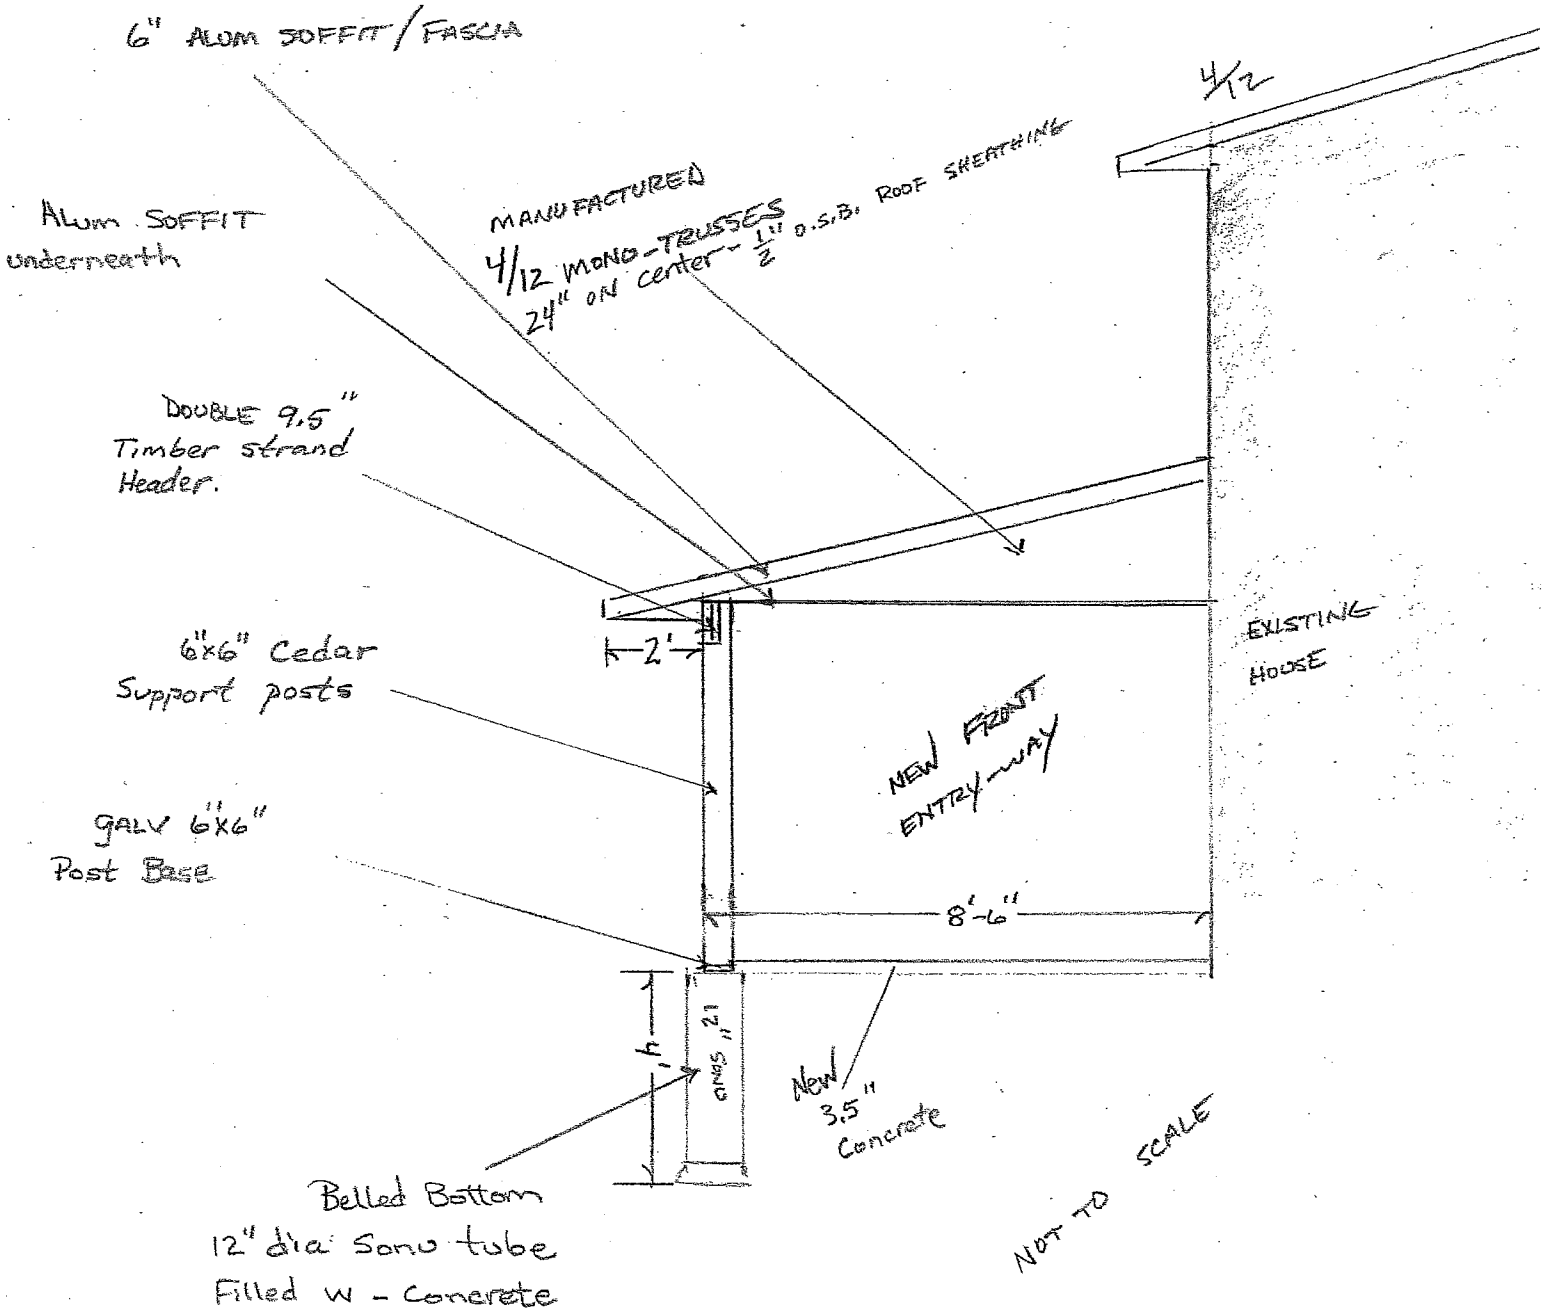 6" ALUM SOFFIT/FASCIA
4/12
MANUFACTURED
4/12 MONO-TRUSSES
24" ON Center - 1/2" O.S.B. ROOF SHEATHING
Alum SOFFIT
underneath
DOUBLE 9.5"
Timber strand
Header.
2'
6"x6" Cedar
Support posts
EXISTING
HOUSE
NEW FRONT
ENTRY-WAY
GALV 6"x6"
Post Base
8'-6"
4'
12" SONO
New
3.5"
Concrete
NOT TO SCALE
Belled Bottom
12" dia Sono tube
Filled w - Concrete